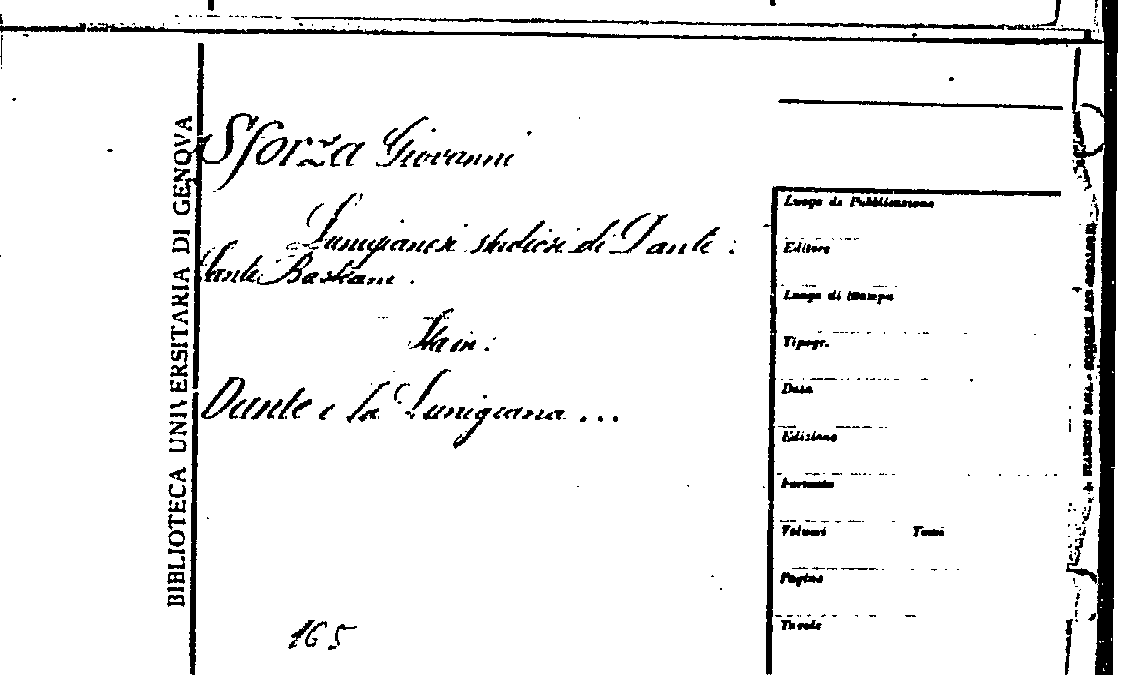 BIBLIOTECA UNIVERSITARIA DI GENOVA
Sforza Giovanni
Lunigianesi studiosi di Dante :
Sta in :
Dante e la Lunigiana ...
165
Luogo di Pubblicazione
Editore
Luogo di stampa
Tipogr.
Data
Edizione
Formato
Volumi Tomi
Pagine
Tavole